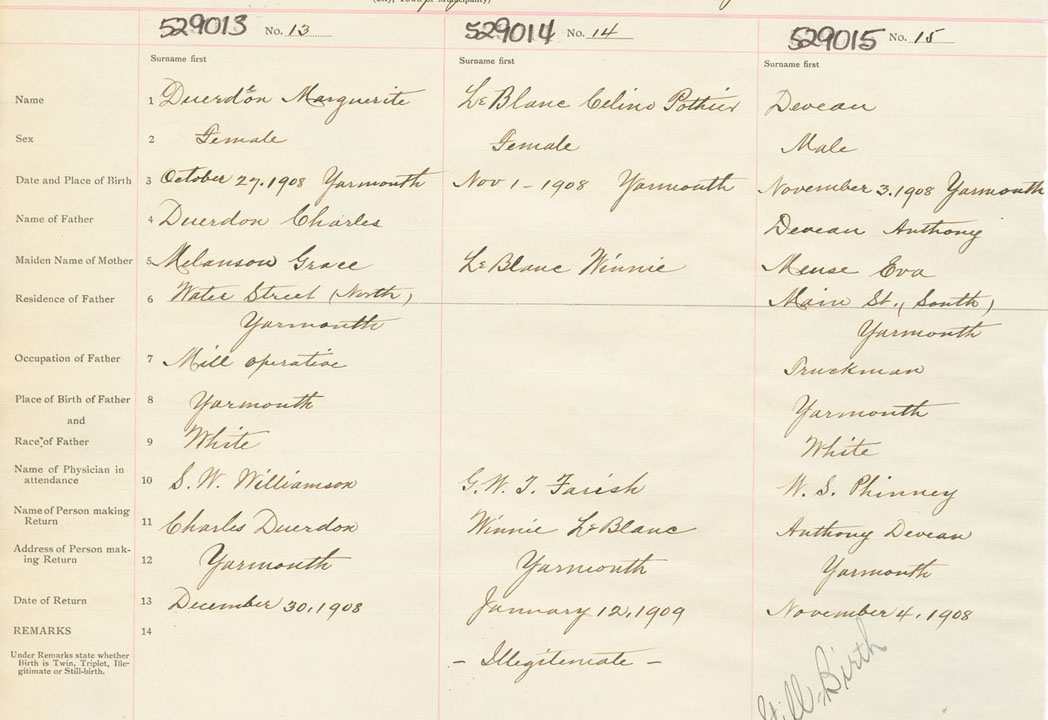 (City, Town or Municipality)
529013 No. 13 529014 No. 14 529015 No. 15
Surname first Surname first Surname first
Name 1 Duerdon Marguerite LeBlanc Celino Pothier Deveau
Sex 2 Female Female Male
Date and Place of Birth 3 October 27, 1908 Yarmouth Nov 1 - 1908 Yarmouth November 3, 1908 Yarmouth
Name of Father 4 Duerdon Charles Deveau Anthony
Maiden Name of Mother 5 Melanson Grace LeBlanc Winnie Meuse Eva
Residence of Father 6 Water Street (North) Main St., (South)
Yarmouth Yarmouth
Occupation of Father 7 Mill operative Truckman
Place of Birth of Father 8 Yarmouth Yarmouth
and
Race of Father 9 White White
Name of Physician in
attendance 10 S. W. Williamson G. W. T. Farish W. S. Phinney
Name of Person making
Return 11 Charles Duerdon Winnie LeBlanc Anthony Deveau
Address of Person mak-
ing Return 12 Yarmouth Yarmouth Yarmouth
Date of Return 13 December 30, 1908 January 12, 1909 November 4, 1908
REMARKS 14
Under Remarks state whether
Birth is Twin, Triplet, Ille-
gitimate or Still-birth.
- Illegitemate -
Still-Birth